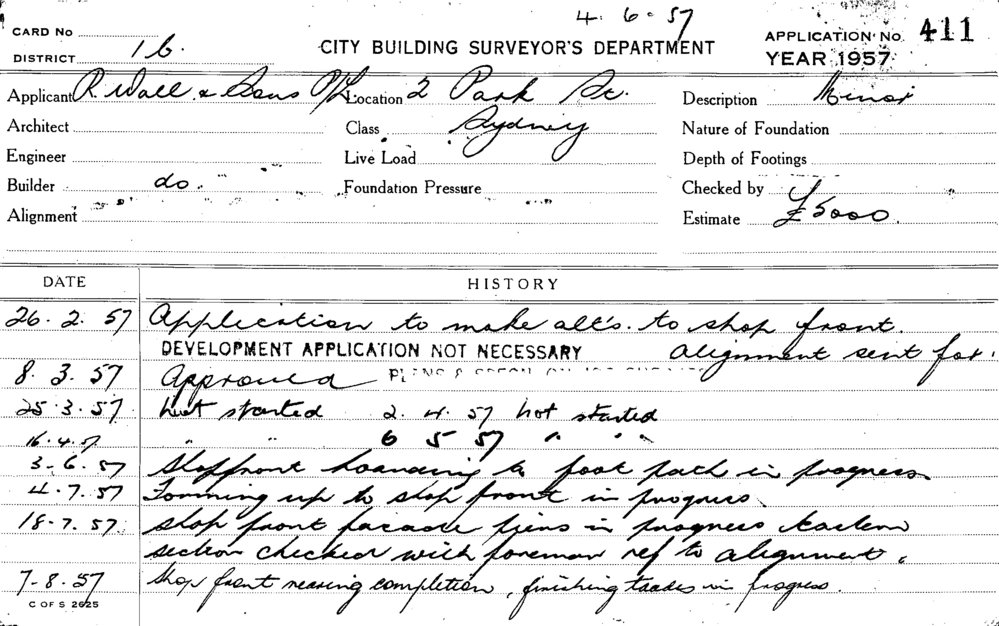 4. 6. 57
CARD No
DISTRICT 16.
CITY BUILDING SURVEYOR'S DEPARTMENT
APPLICATION No. 411
YEAR 1957
Applicant R. Wall & Sons P/L Location 2 Park St. Description Minor
Architect Class Sydney Nature of Foundation
Engineer Live Load Depth of Footings
Builder do. Foundation Pressure Checked by
Alignment Estimate £5000.
DATE HISTORY
26. 2. 57 Application to make alt's. to shop front.
DEVELOPMENT APPLICATION NOT NECESSARY Alignment sent for.
8. 3. 57 Approved
25. 3. 57 Not started 2. 4. 57 Not started
16. 4. 57 " " 6 5 57 " "
3-6. 57 Shopfront hoarding to foot path in progress
4. 7. 57 Tomming up to shop front in progress
18. 7. 57 Shop front facade piers in progress Eastern
section checked with foreman ref to alignment.
7-8. 57 Shop front nearing completion, finishing trades in progress.
C OF S 2625